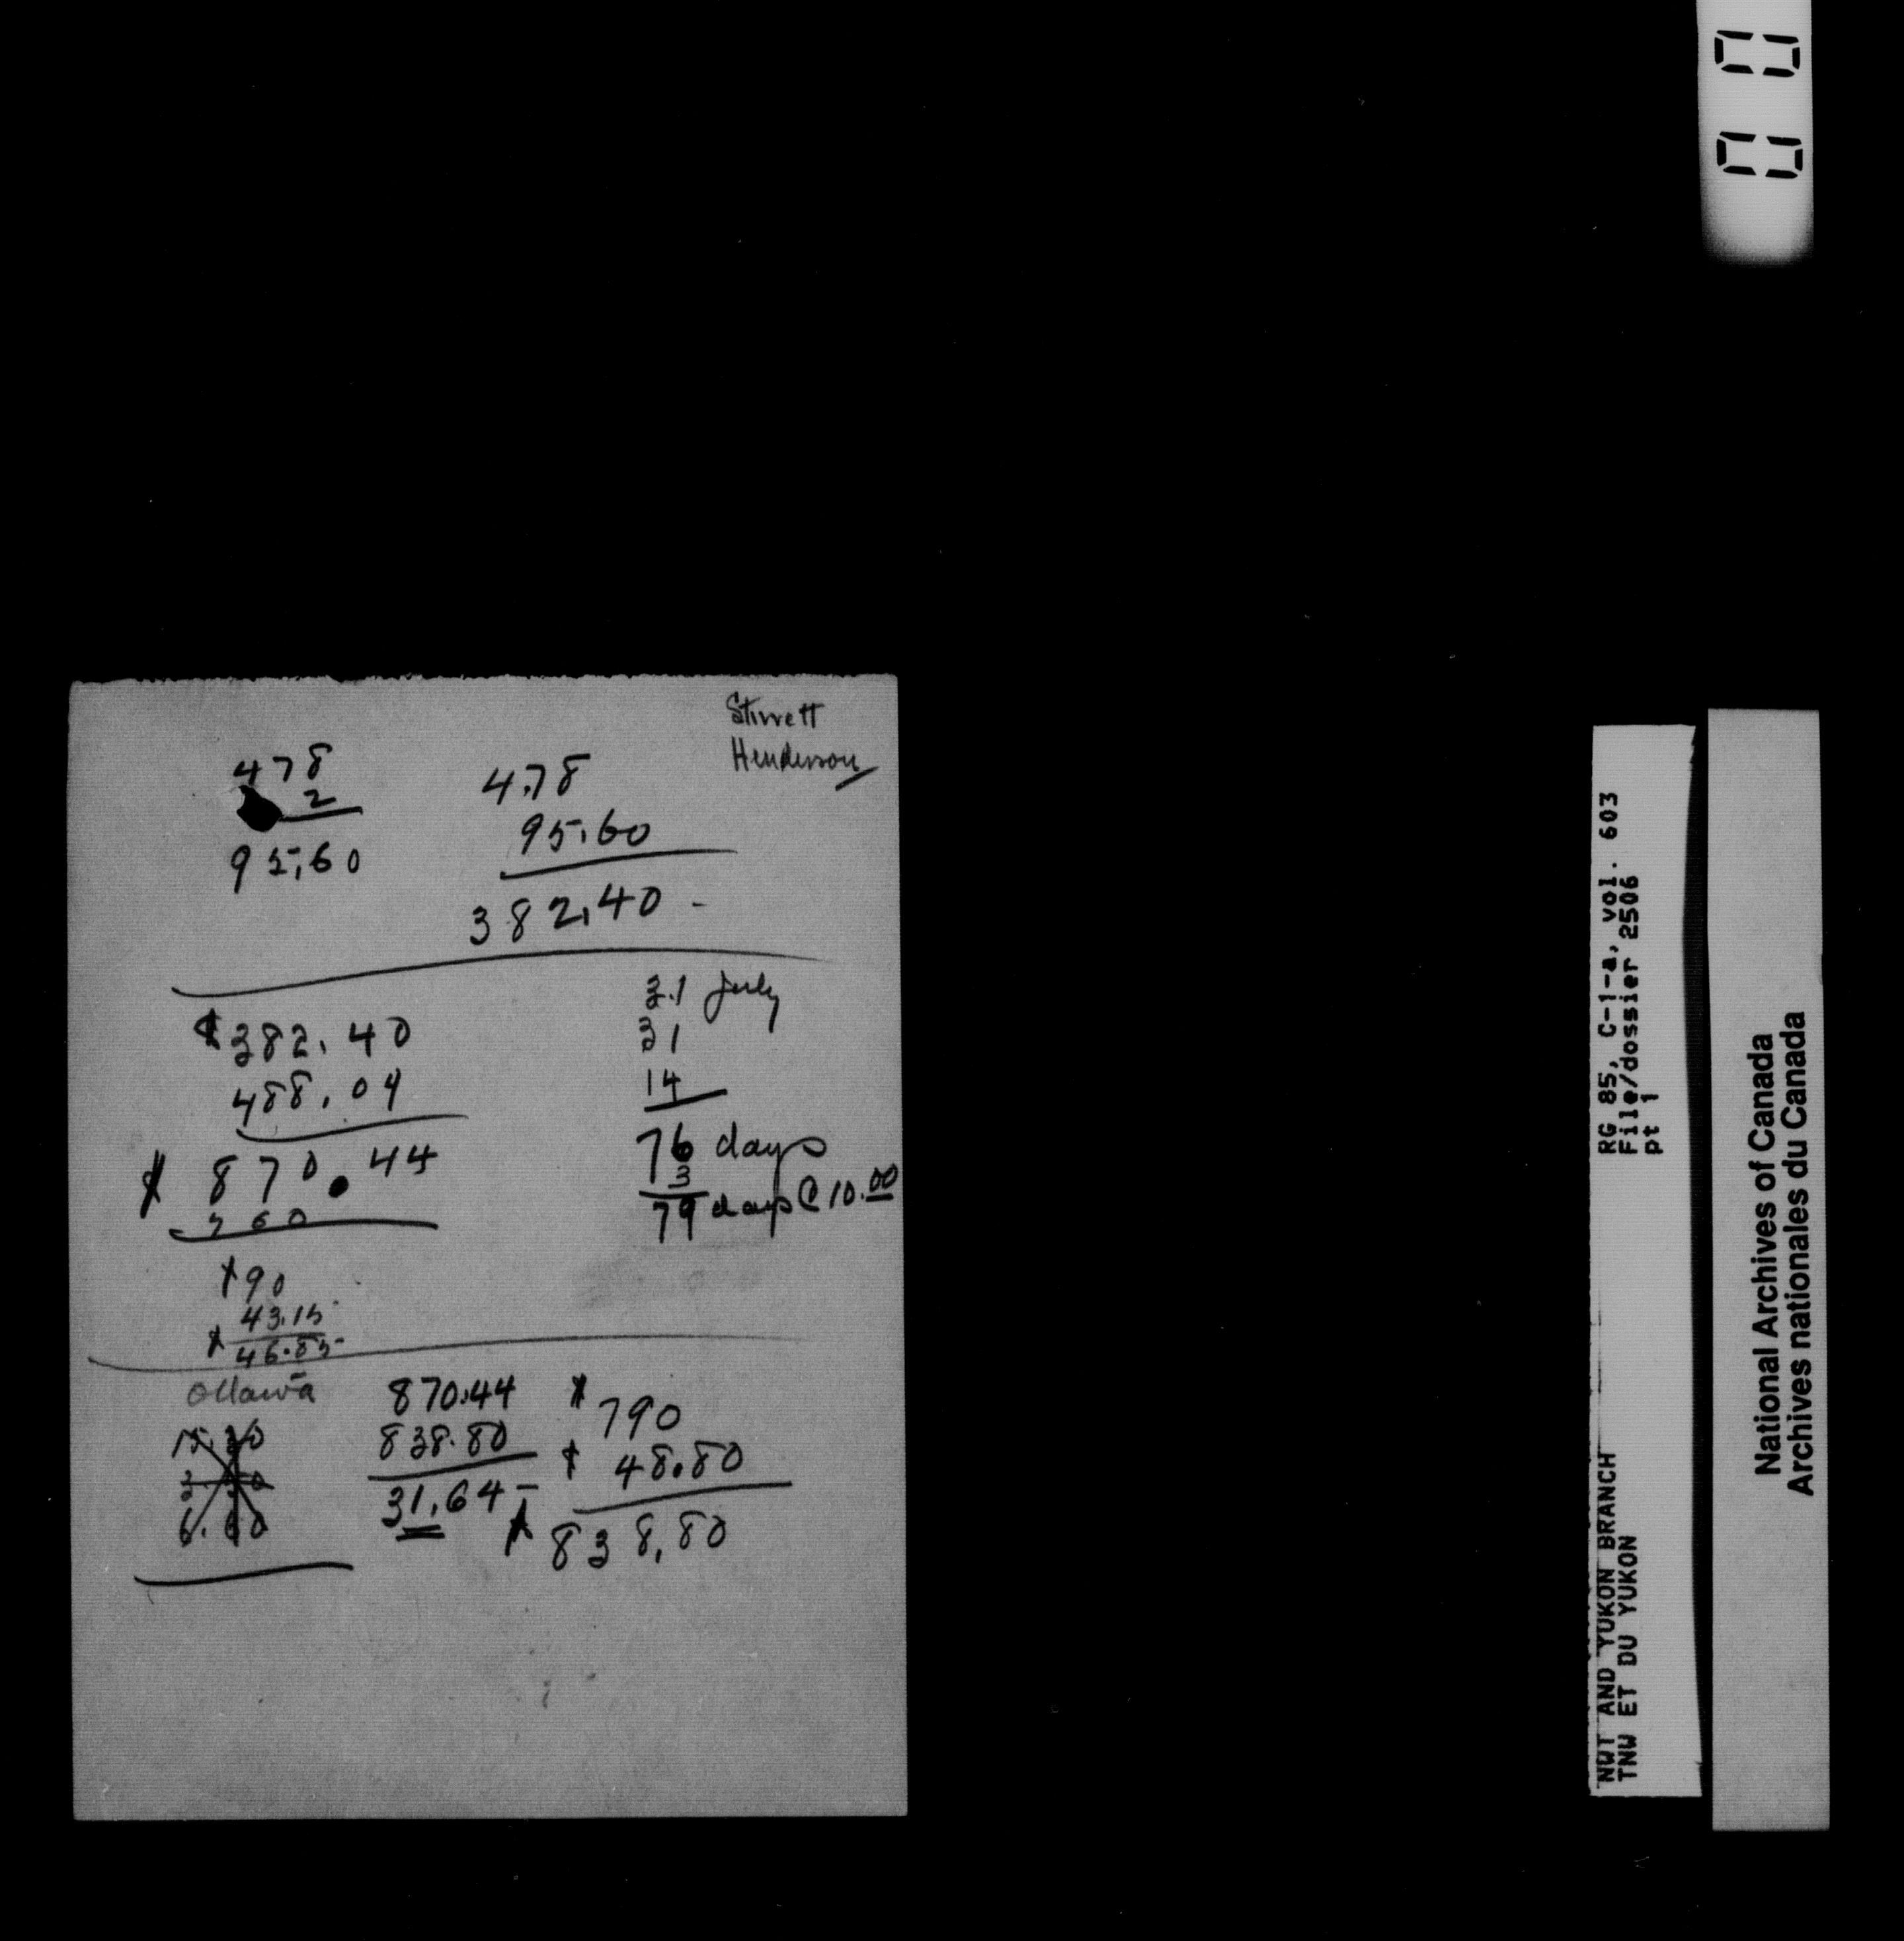 Stirrett
Henderson
478
2
95.60
4.78
95.60
382.40 -
$382.40
488.04
$ 870.44
760
$90
43.15
$ 46.85
31 July
31
14
76 days
3
79 days @ 10.00
Ottawa
870.44
838.80
31.64 -
$ 790
$ 48.80
$ 838.80
NWT AND YUKON BRANCH
TNW ET DU YUKON
RG 85, C-1-a, vol. 603
File/dossier 2506
pt 1
National Archives of Canada
Archives nationales du Canada